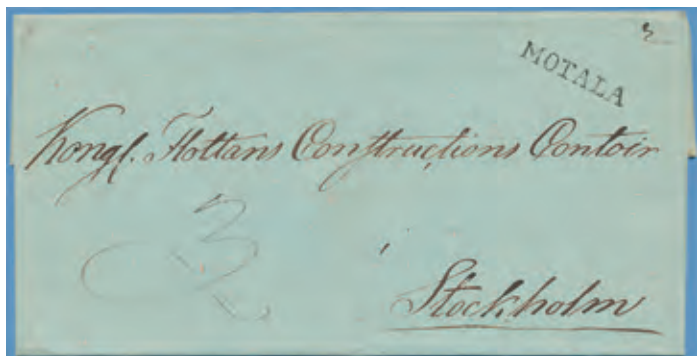 MOTALA
Kongl. Flottans Constructions Contoir
3
Stockholm